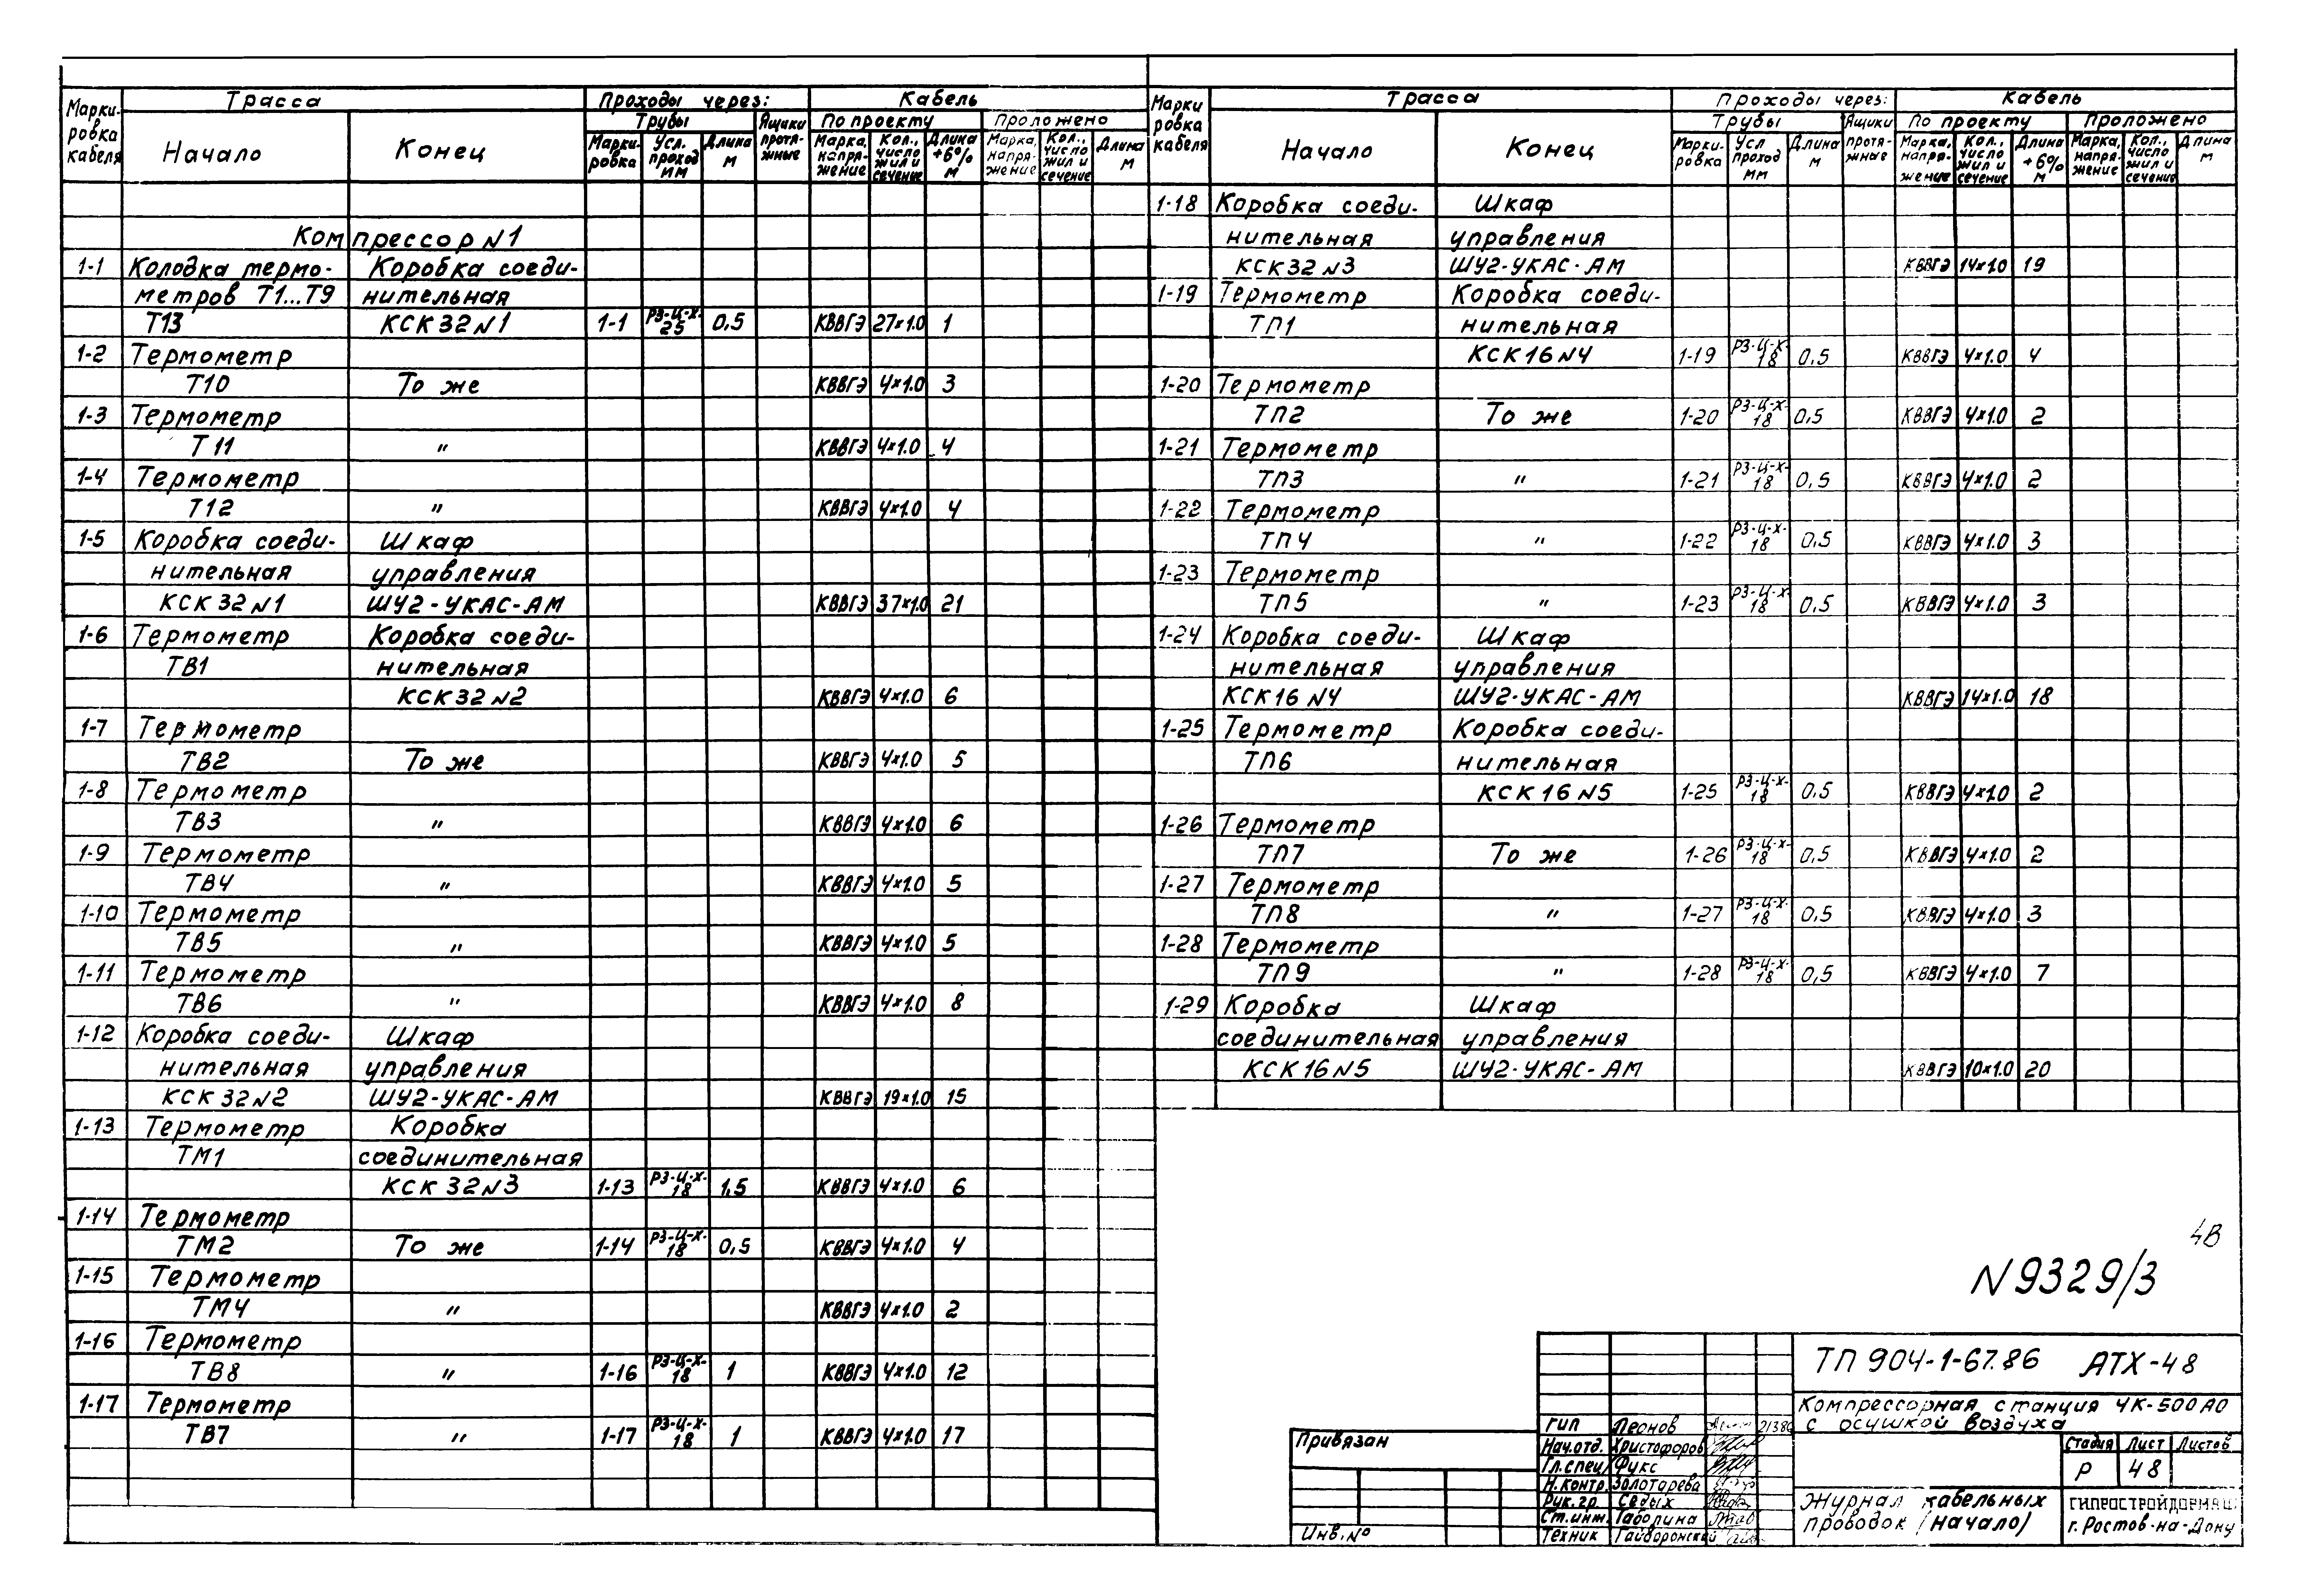 Марки-
ровка
кабеля
Трасса
Начало
Конец
Проходы через:
Трубы
Марки-
ровка
Усл.
проход
мм
Длина
м
Ящики
протя-
жные
Кабель
По проекту
Марка,
напря-
жение
Кол.,
число
жил и
сечение
Длина
+6%
м
Проложено
Марка,
напря-
жение
Кол.,
число
жил и
сечение
Длина
м
Компрессор N1
1-1 Колодка термо- Коробка соеди-
метров Т1...Т9 нительная
Т13 КСК32N1 1-1 РЗ-Ц-Х-25 0,5 КВВГЭ 27×1.0 1
1-2 Термометр
Т10 То же КВВГЭ 4×1.0 3
1-3 Термометр
Т11 " КВВГЭ 4×1.0 4
1-4 Термометр
Т12 " КВВГЭ 4×1.0 4
1-5 Коробка соеди- Шкаф
нительная управления
КСК32N1 ШУ2-УКАС-АМ КВВГЭ 37×1.0 21
1-6 Термометр Коробка соеди-
ТВ1 нительная
КСК32N2 КВВГЭ 4×1.0 6
1-7 Термометр
ТВ2 То же КВВГЭ 4×1.0 5
1-8 Термометр
ТВ3 " КВВГЭ 4×1.0 6
1-9 Термометр
ТВ4 " КВВГЭ 4×1.0 5
1-10 Термометр
ТВ5 " КВВГЭ 4×1.0 5
1-11 Термометр
ТВ6 " КВВГЭ 4×1.0 8
1-12 Коробка соеди- Шкаф
нительная управления
КСК32N2 ШУ2-УКАС-АМ КВВГЭ 19×1.0 15
1-13 Термометр Коробка
ТМ1 соединительная
КСК32N3 1-13 РЗ-Ц-Х-18 1,5 КВВГЭ 4×1.0 6
1-14 Термометр
ТМ2 То же 1-14 РЗ-Ц-Х-18 0,5 КВВГЭ 4×1.0 4
1-15 Термометр
ТМ4 " КВВГЭ 4×1.0 2
1-16 Термометр
ТВ8 " 1-16 РЗ-Ц-Х-18 1 КВВГЭ 4×1.0 12
1-17 Термометр
ТВ7 " 1-17 РЗ-Ц-Х-18 1 КВВГЭ 4×1.0 17
Марки
ровка
кабеля
Трасса
Начало
Конец
Проходы через:
Трубы
Марки-
ровка
Усл
проход
мм
Длина
м
Ящики
протя-
жные
Кабель
По проекту
Марка,
напря-
жение
Кол.,
число
жил и
сечение
Длина
+6%
м
Проложено
Марка,
напря-
жение
Кол.,
число
жил и
сечение
Длина
м
1-18 Коробка соеди- Шкаф
нительная управления
КСК32N3 ШУ2-УКАС-АМ КВВГЭ 14×1.0 19
1-19 Термометр Коробка соеди-
ТП1 нительная
КСК16N4 1-19 РЗ-Ц-Х-18 0,5 КВВГЭ 4×1.0 4
1-20 Термометр
ТП2 То же 1-20 РЗ-Ц-Х-18 0,5 КВВГЭ 4×1.0 2
1-21 Термометр
ТП3 " 1-21 РЗ-Ц-Х-18 0,5 КВВГЭ 4×1.0 2
1-22 Термометр
ТП4 " 1-22 РЗ-Ц-Х-18 0,5 КВВГЭ 4×1.0 3
1-23 Термометр
ТП5 " 1-23 РЗ-Ц-Х-18 0,5 КВВГЭ 4×1.0 3
1-24 Коробка соеди- Шкаф
нительная управления
КСК16N4 ШУ2-УКАС-АМ КВВГЭ 14×1.0 18
1-25 Термометр Коробка соеди-
ТП6 нительная
КСК16N5 1-25 РЗ-Ц-Х-18 0,5 КВВГЭ 4×1.0 2
1-26 Термометр
ТП7 То же 1-26 РЗ-Ц-Х-18 0,5 КВВГЭ 4×1.0 2
1-27 Термометр
ТП8 " 1-27 РЗ-Ц-Х-18 0,5 КВВГЭ 4×1.0 3
1-28 Термометр
ТП9 " 1-28 РЗ-Ц-Х-18 0,5 КВВГЭ 4×1.0 7
1-29 Коробка Шкаф
соединительная управления
КСК16N5 ШУ2-УКАС-АМ КВВГЭ 10×1.0 20
N9329/3
Привязан
Инв. №
ГИП Леонов
Нач.отд. Христофоров
Гл.спец. Фукс
Н.контр. Золотарева
Рук.гр. Седых
Ст.инж. Таболина
Техник Гайворонская
ТП 904-1-67.86 АТХ-48
Компрессорная станция ЧК-500АО
с осушкой воздуха
Стадия Лист Листов
Р 48
Журнал кабельных
проводок (начало)
ГИПРОСТРОЙДОРМАШ
г. Ростов-на-Дону